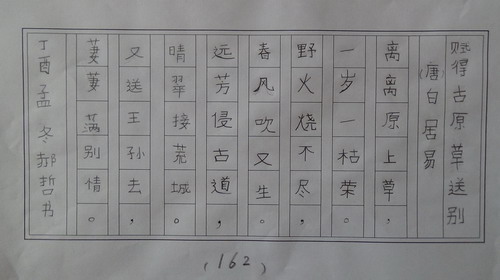 赋得古原草送别
(唐)白居易
离离原上草，
一岁一枯荣。
野火烧不尽，
春风吹又生。
远芳侵古道，
晴翠接荒城。
又送王孙去，
萋萋满别情。
丁酉孟冬郝哲书
(162)